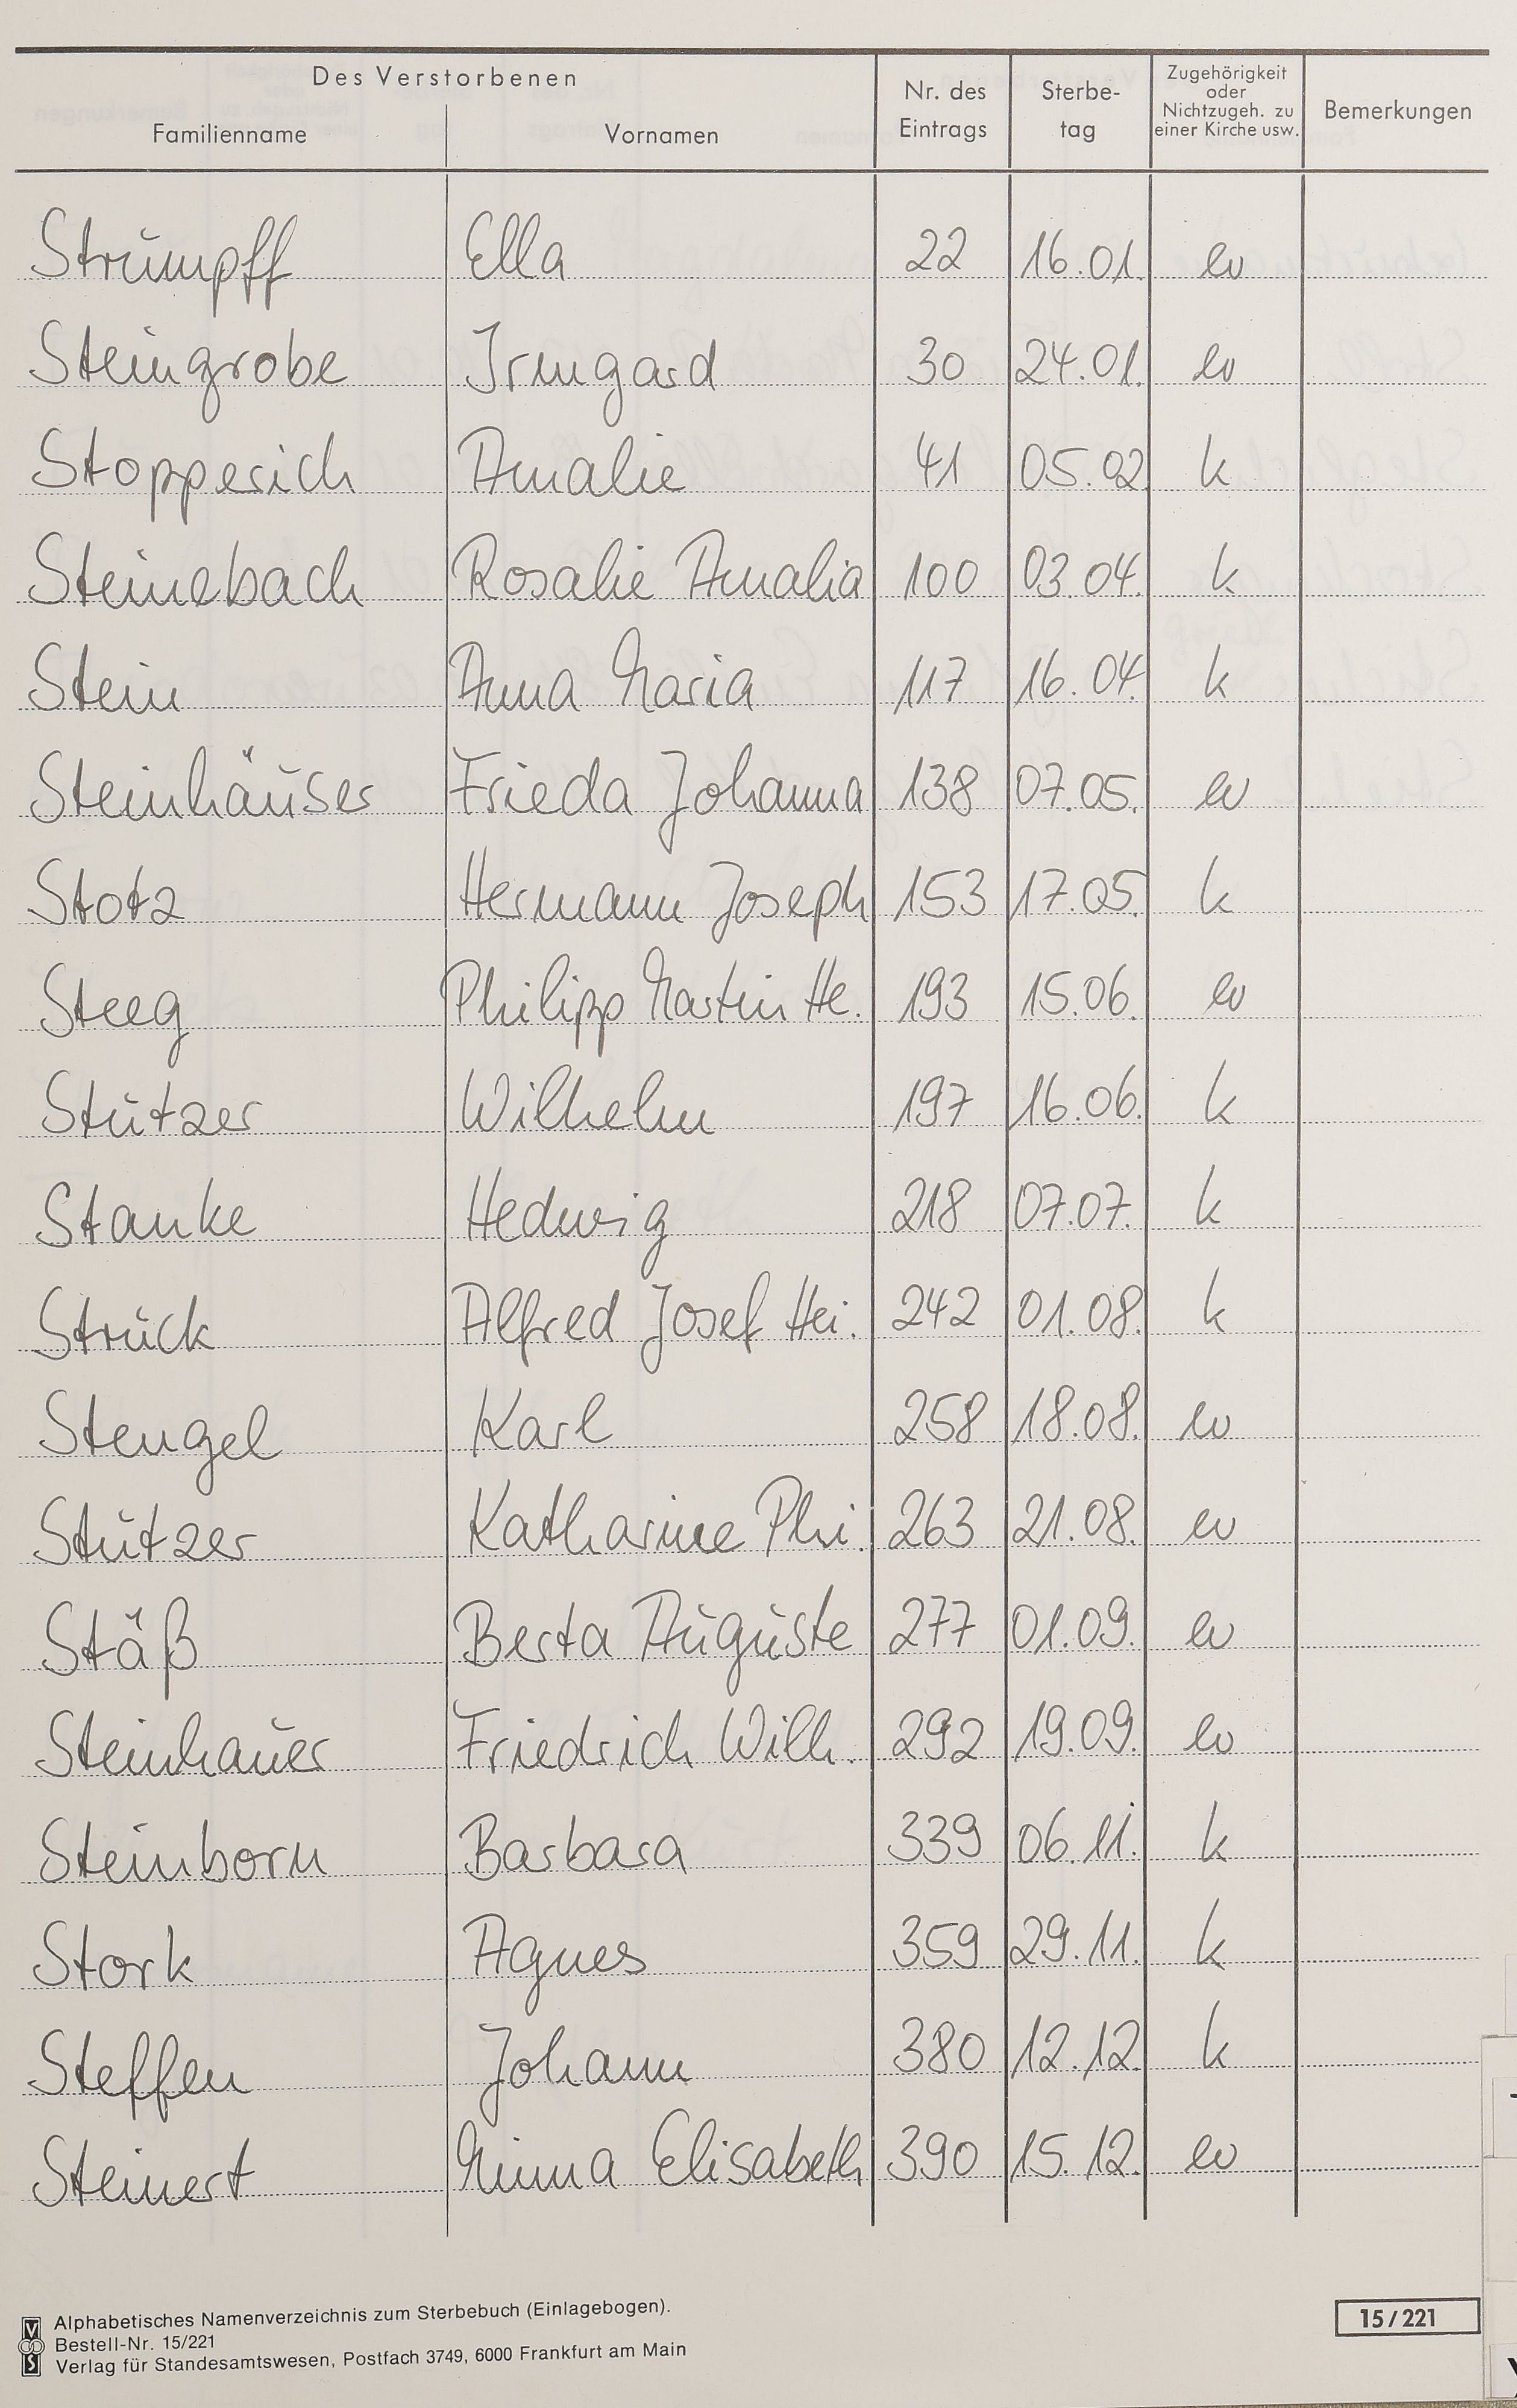 Des Verstorbenen
Familienname Vornamen Nr. des Eintrags Sterbe-tag Zugehörigkeit oder Nichtzugeh. zu einer Kirche usw. Bemerkungen
Strumpff Ella 22 16.01. ev
Steingrobe Irmgard 30 24.01. ev
Stopperich Amalie 41 05.02 k
Steinebach Rosalie Amalia 100 03.04. k
Stein Anna Maria 117 16.04. k
Steinhäuser Frieda Johanna 138 07.05. ev
Stotz Hermann Joseph 153 17.05. k
Steeg Philipp Martin He. 193 15.06. ev
Stutzer Wilhelm 197 16.06. k
Stanke Hedwig 218 07.07. k
Struck Alfred Josef Hei. 242 01.08. k
Stengel Karl 258 18.08. ev
Stutzer Katharine Phi. 263 21.08. ev
Stäß Berta Auguste 277 01.09. ev
Steinhauer Friedrich Wilh. 292 19.09. ev
Steinborn Barbara 339 06.11. k
Stork Agnes 359 29.11. k
Steffen Johann 380 12.12 k
Steinert Minna Elisabeth 390 15.12. ev
Alphabetisches Namenverzeichnis zum Sterbebuch (Einlagebogen).
Bestell-Nr. 15/221
Verlag für Standesamtswesen, Postfach 3749, 6000 Frankfurt am Main
15/221